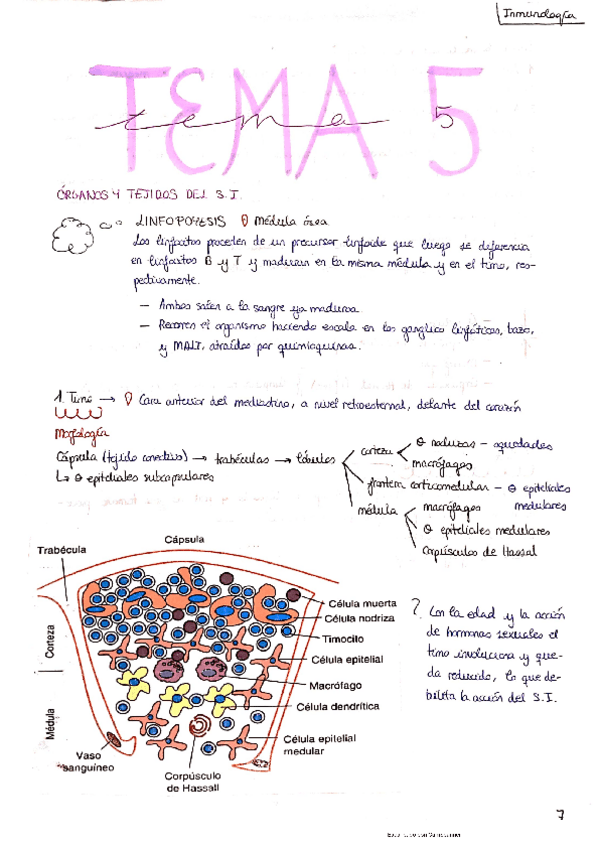 Inmunología
TEMA 5
tema 5
ÓRGANOS Y TEJIDOS DEL S.I.
LINFOPOYESIS Médula ósea
Los linfocitos proceden de un precursor linfoide que luego se diferencia
en linfocitos B y T y maduran en la misma médula y en el timo, res-
pectivamente.
— Ambos salen a la sangre ya maduros
— Recorren el organismo haciendo escala en los ganglios linfáticos, bazo,
y MALT, atraídos por quimioquinas.
1. Timo → Cara anterior del mediastino, a nivel retroesternal, delante del corazón
Morfología
Cápsula (tejido conectivo) → trabéculas → lóbulos
↳ epiteliales subcapsulares
corteza
nodrizas -
macrófagos
frontera corticomedular - epiteliales
medulares
médula
macrófagos
epiteliales medulares
corpúsculos de Hassal
Cápsula
Trabécula
Célula muerta
Célula nodriza
Timocito
Célula epitelial
Macrófago
Célula dendrítica
Célula epitelial
medular
Corteza
Médula
Vaso
sanguíneo
Corpúsculo
de Hassall
Con la edad y la acción
de hormonas sexuales el
timo involuciona y que-
da reducido, lo que de-
bilita la acción del S.I.
7